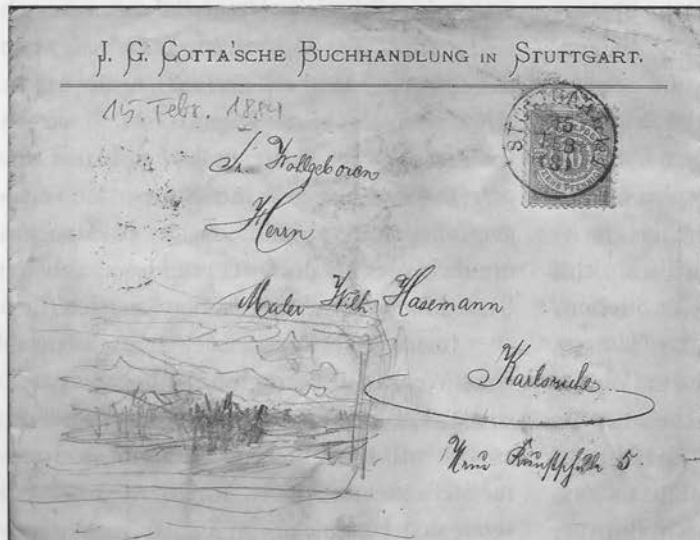 J. G. COTTA'SCHE BUCHHANDLUNG IN STUTTGART.
15. Febr. 1884
STUTTGART
15
FEB
10
Wohlgeboren
Herrn
Maler Wilh Hasemann
Karlsruhe.
Neue Kunstschule 5.